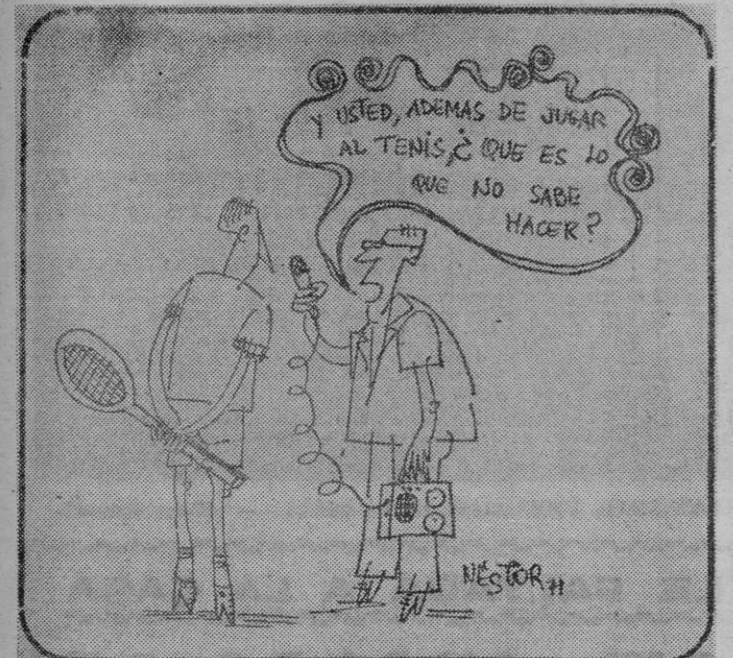 Y USTED, ADEMAS DE JUGAR
AL TENIS, ¿QUE ES LO
QUE NO SABE
HACER?
NÉSTOR